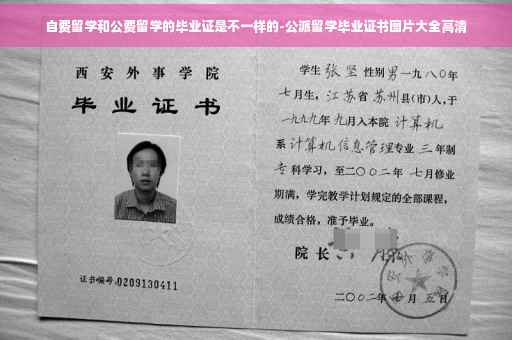 自费留学和公费留学的毕业证是不一样的-公派留学毕业证书图片大全高清
西安外事学院
毕业证书
证书编号:0209130411
学生 张坚 性别 男 一九八〇年
七月生，江苏省 苏州县(市)人，于
一九九九年 九月入本院 计算机
系 计算机信息管理专业 三 年制
专 科学习，至二〇〇二年 七月修业
期满，学完教学计划规定的全部课程，
成绩合格，准予毕业。
院长
二〇〇二年 七 月 五 日